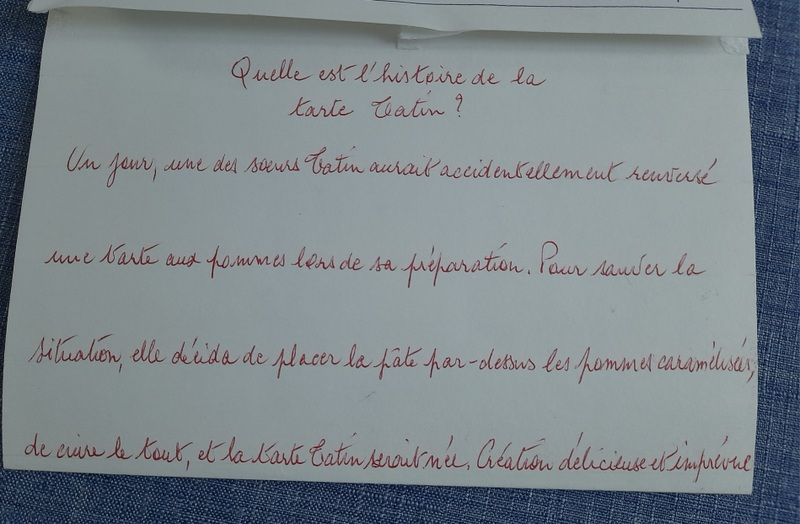 Quelle est l'histoire de la
tarte Tatin ?
Un jour, une des sœurs Tatin aurait accidentellement renversé
une tarte aux pommes lors de sa préparation. Pour sauver la
situation, elle décida de placer la pâte par-dessus les pommes caramélisées,
de cuire le tout, et la tarte Tatin serait née. Création délicieuse et imprévue